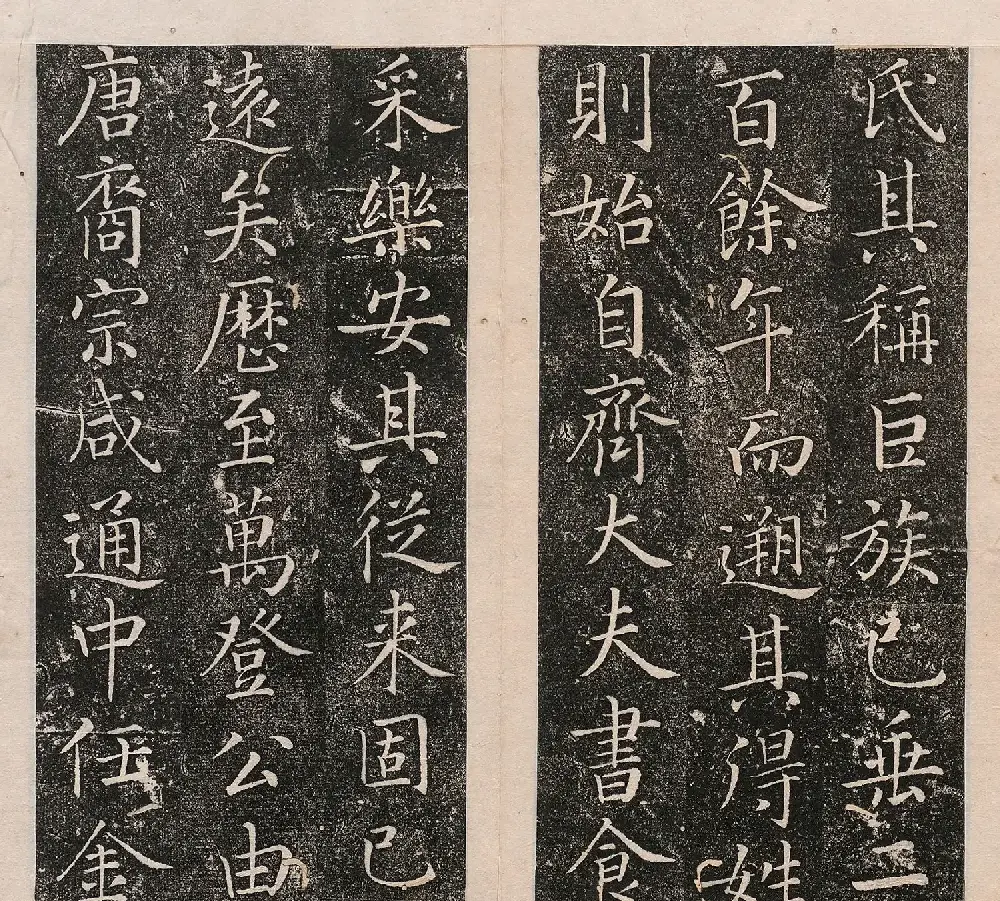 氏其稱巨族已垂二
百餘年而遡其得姓
則始自齊大夫書食
采樂安其從来固已
遠矣歷至萬登公由
唐裔宗咸通中任金